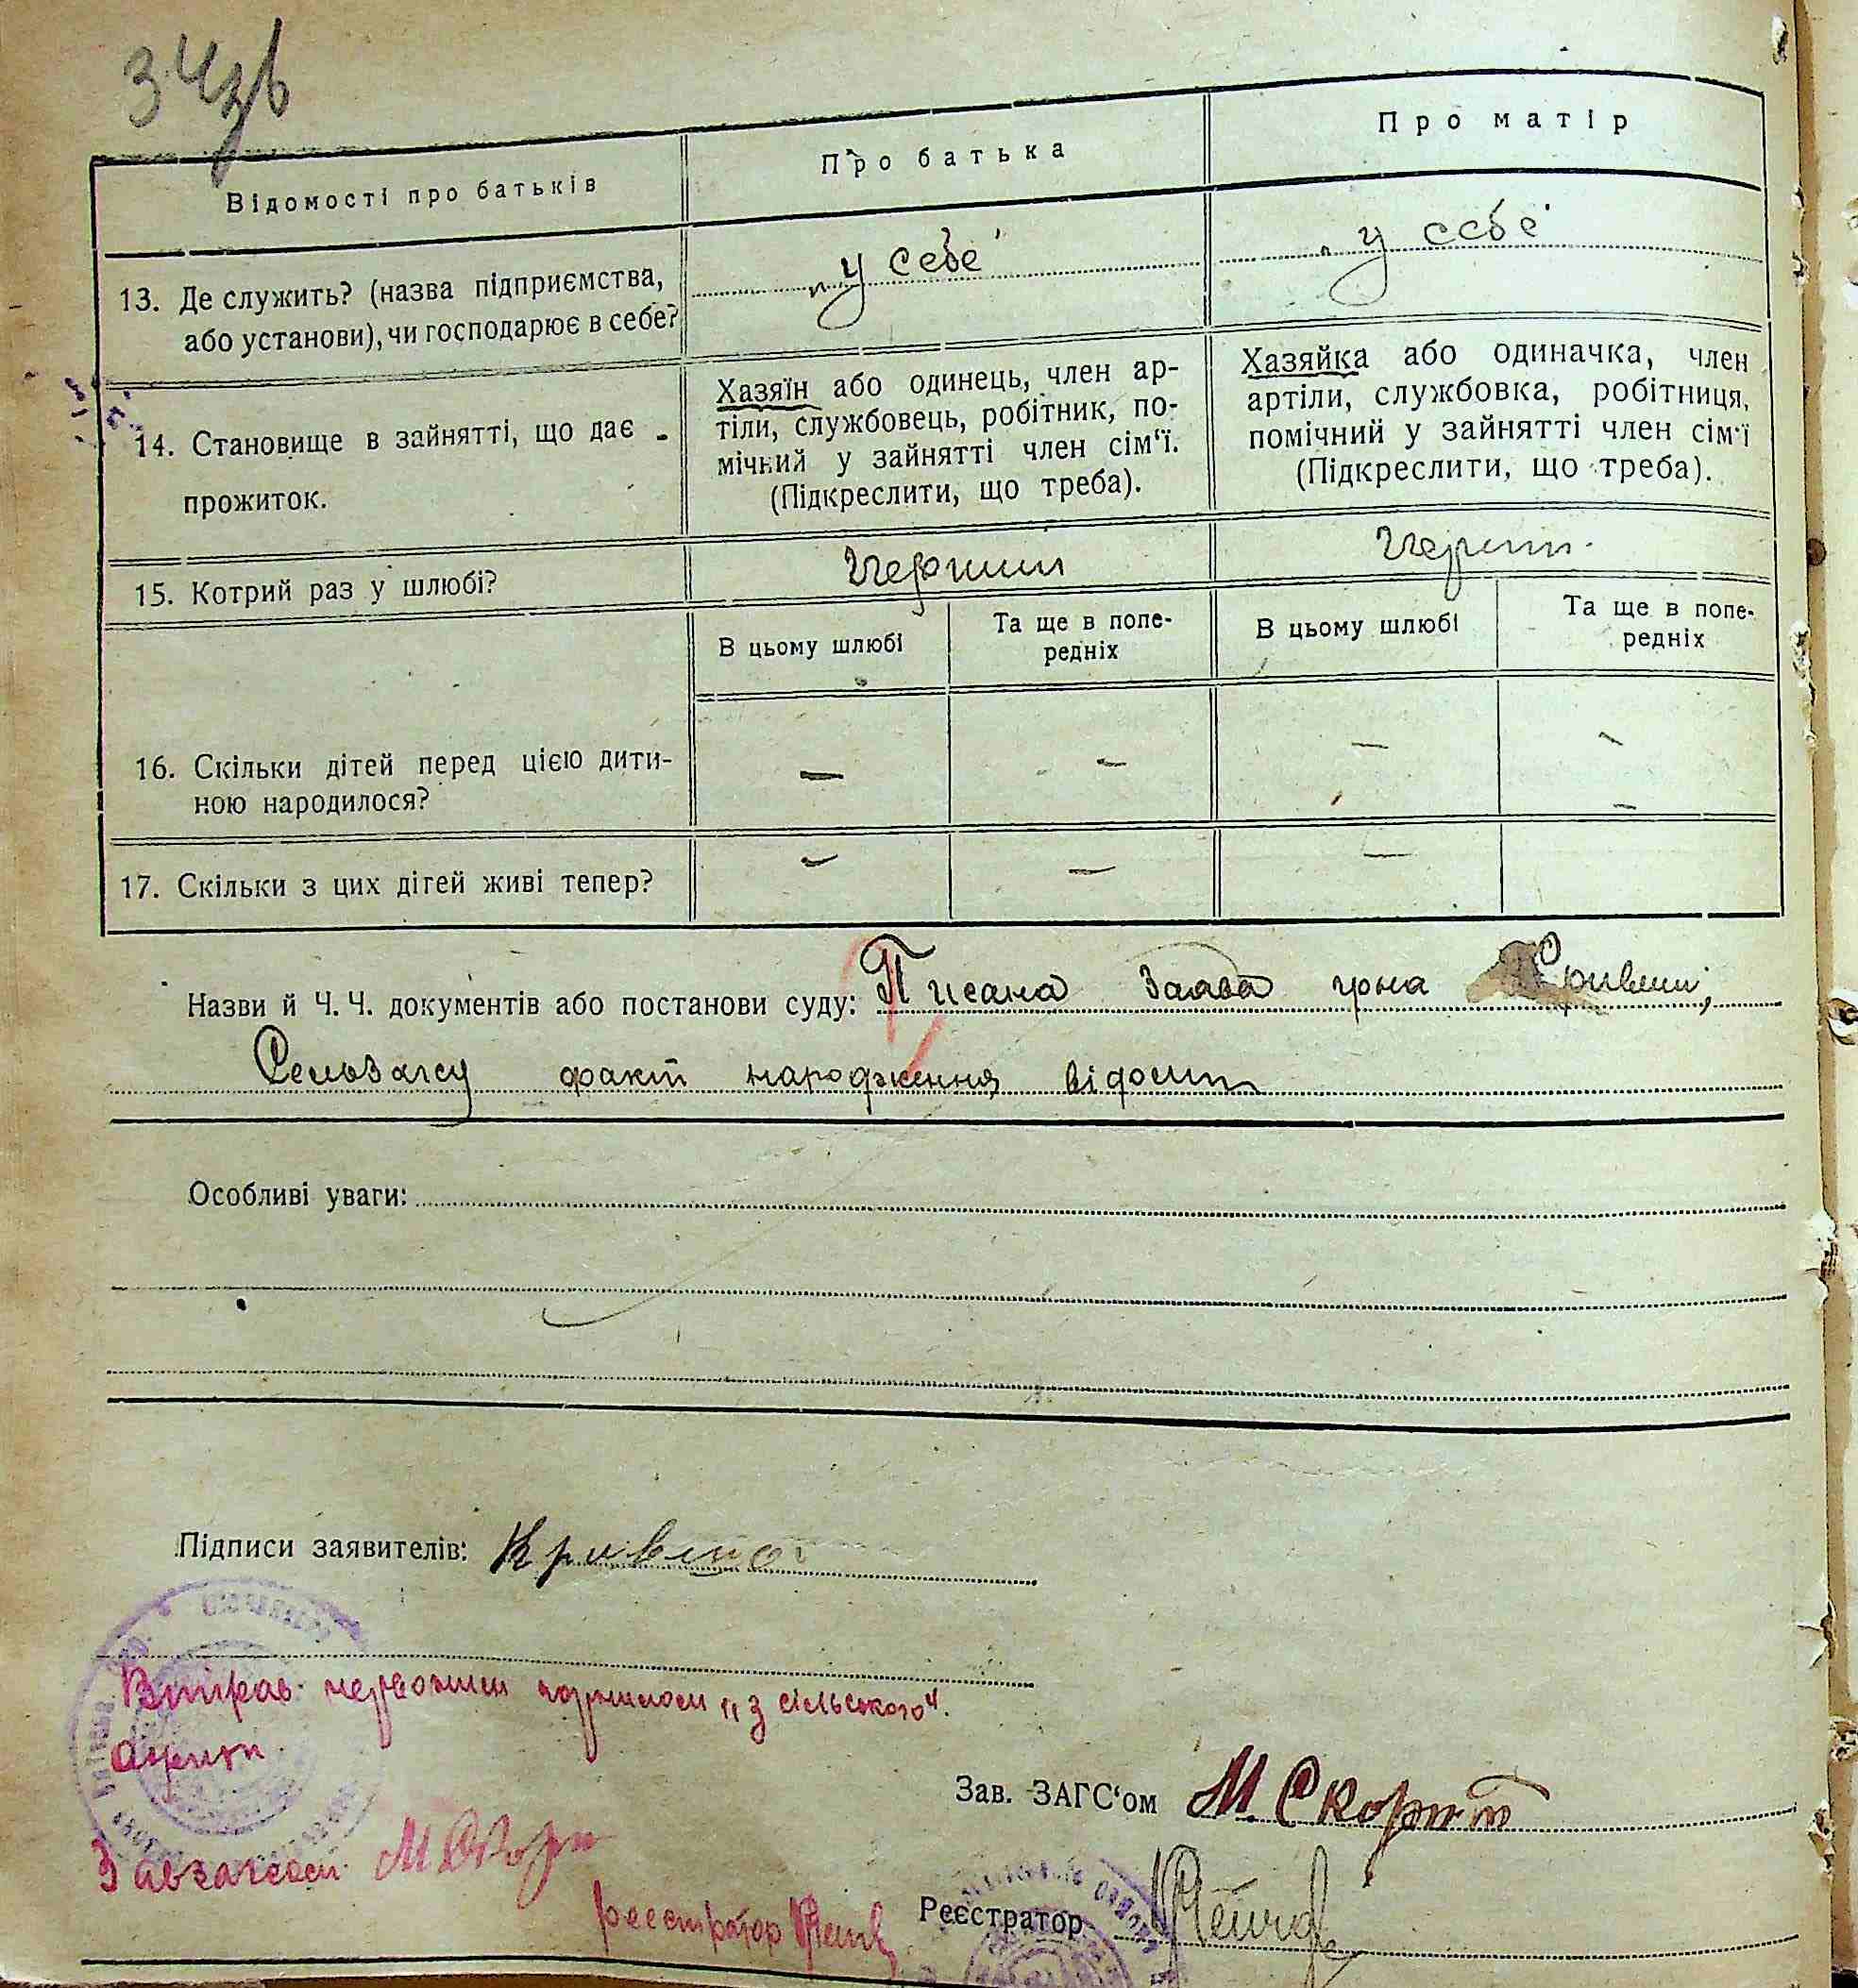 Відомості про батьків
Про батька
Про матір
13. Де служить? (назва підприємства,
або установи), чи господарює в себе?
„у себе"
„у себе"
14. Становище в зайнятті, що дає
прожиток.
Хазяїн або одинець, член ар-
тіли, службовець, робітник, по-
мічний у зайнятті член сім‘ї.
(Підкреслити, що треба).
Хазяйка або одиначка, член
артіли, службовка, робітниця,
помічний у зайнятті член сім‘ї
(Підкреслити, що треба).
15. Котрий раз у шлюбі?
В цьому шлюбі
Та ще в попе-
редніх
В цьому шлюбі
Та ще в попе-
редніх
16. Скільки дітей перед цією дити-
ною народилося?
— — — —
17. Скільки з цих дітей живі тепер?
— — — —
Назви й Ч. Ч. документів або постанови суду: Писана заява
факт народження
Особливі уваги:
Підписи заявителів:
„з сільського".
Зав. ЗАГС‘ом М. Скорит
реєстратор
Реєстратор